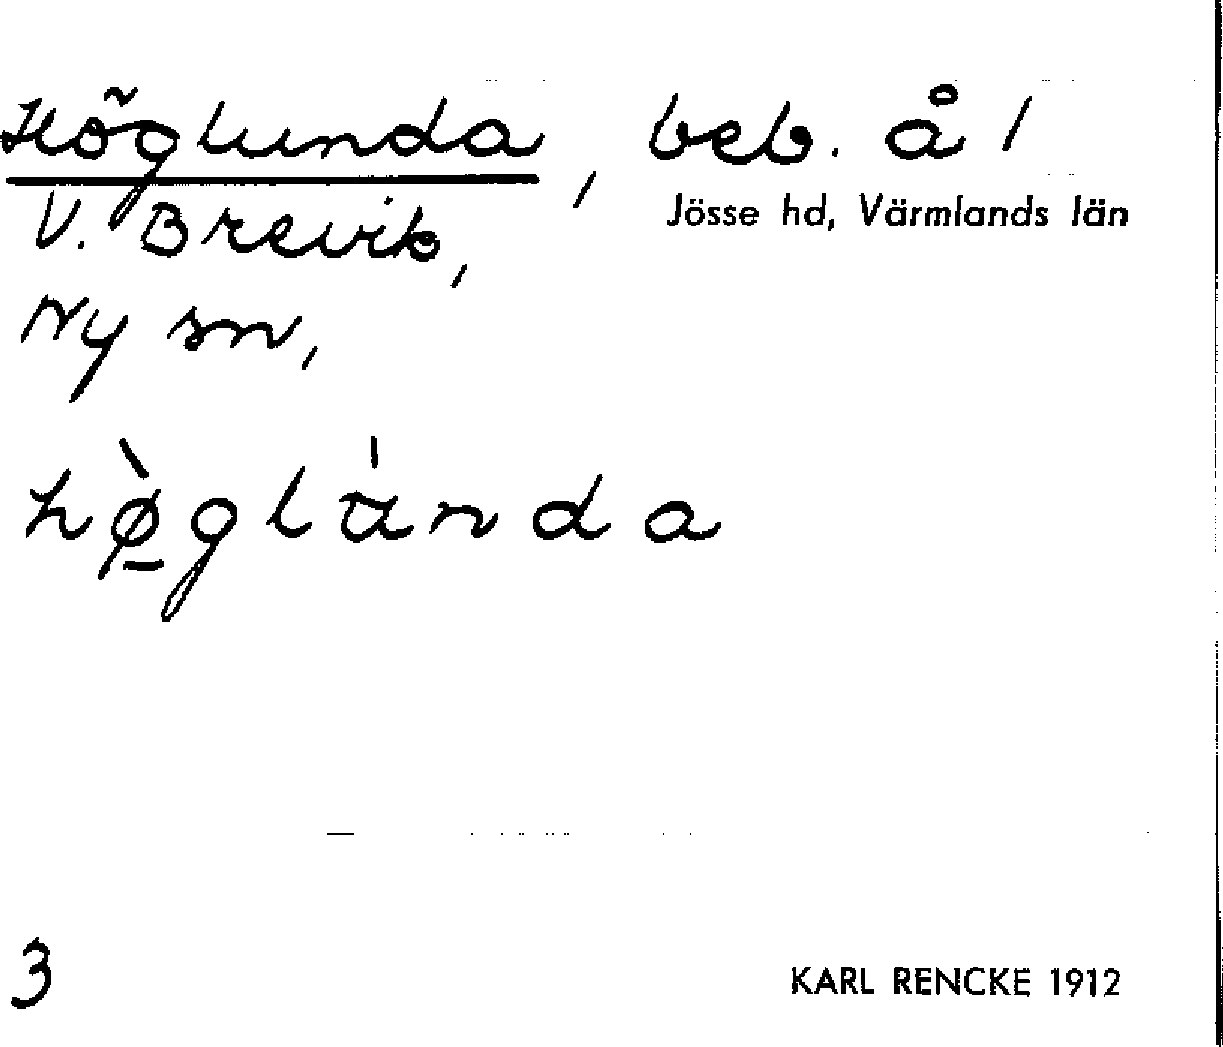 Höglunda, beb. å /
Jösse hd, Värmlands län
V. Brevik,
Ny sn,
3
KARL RENCKE 1912